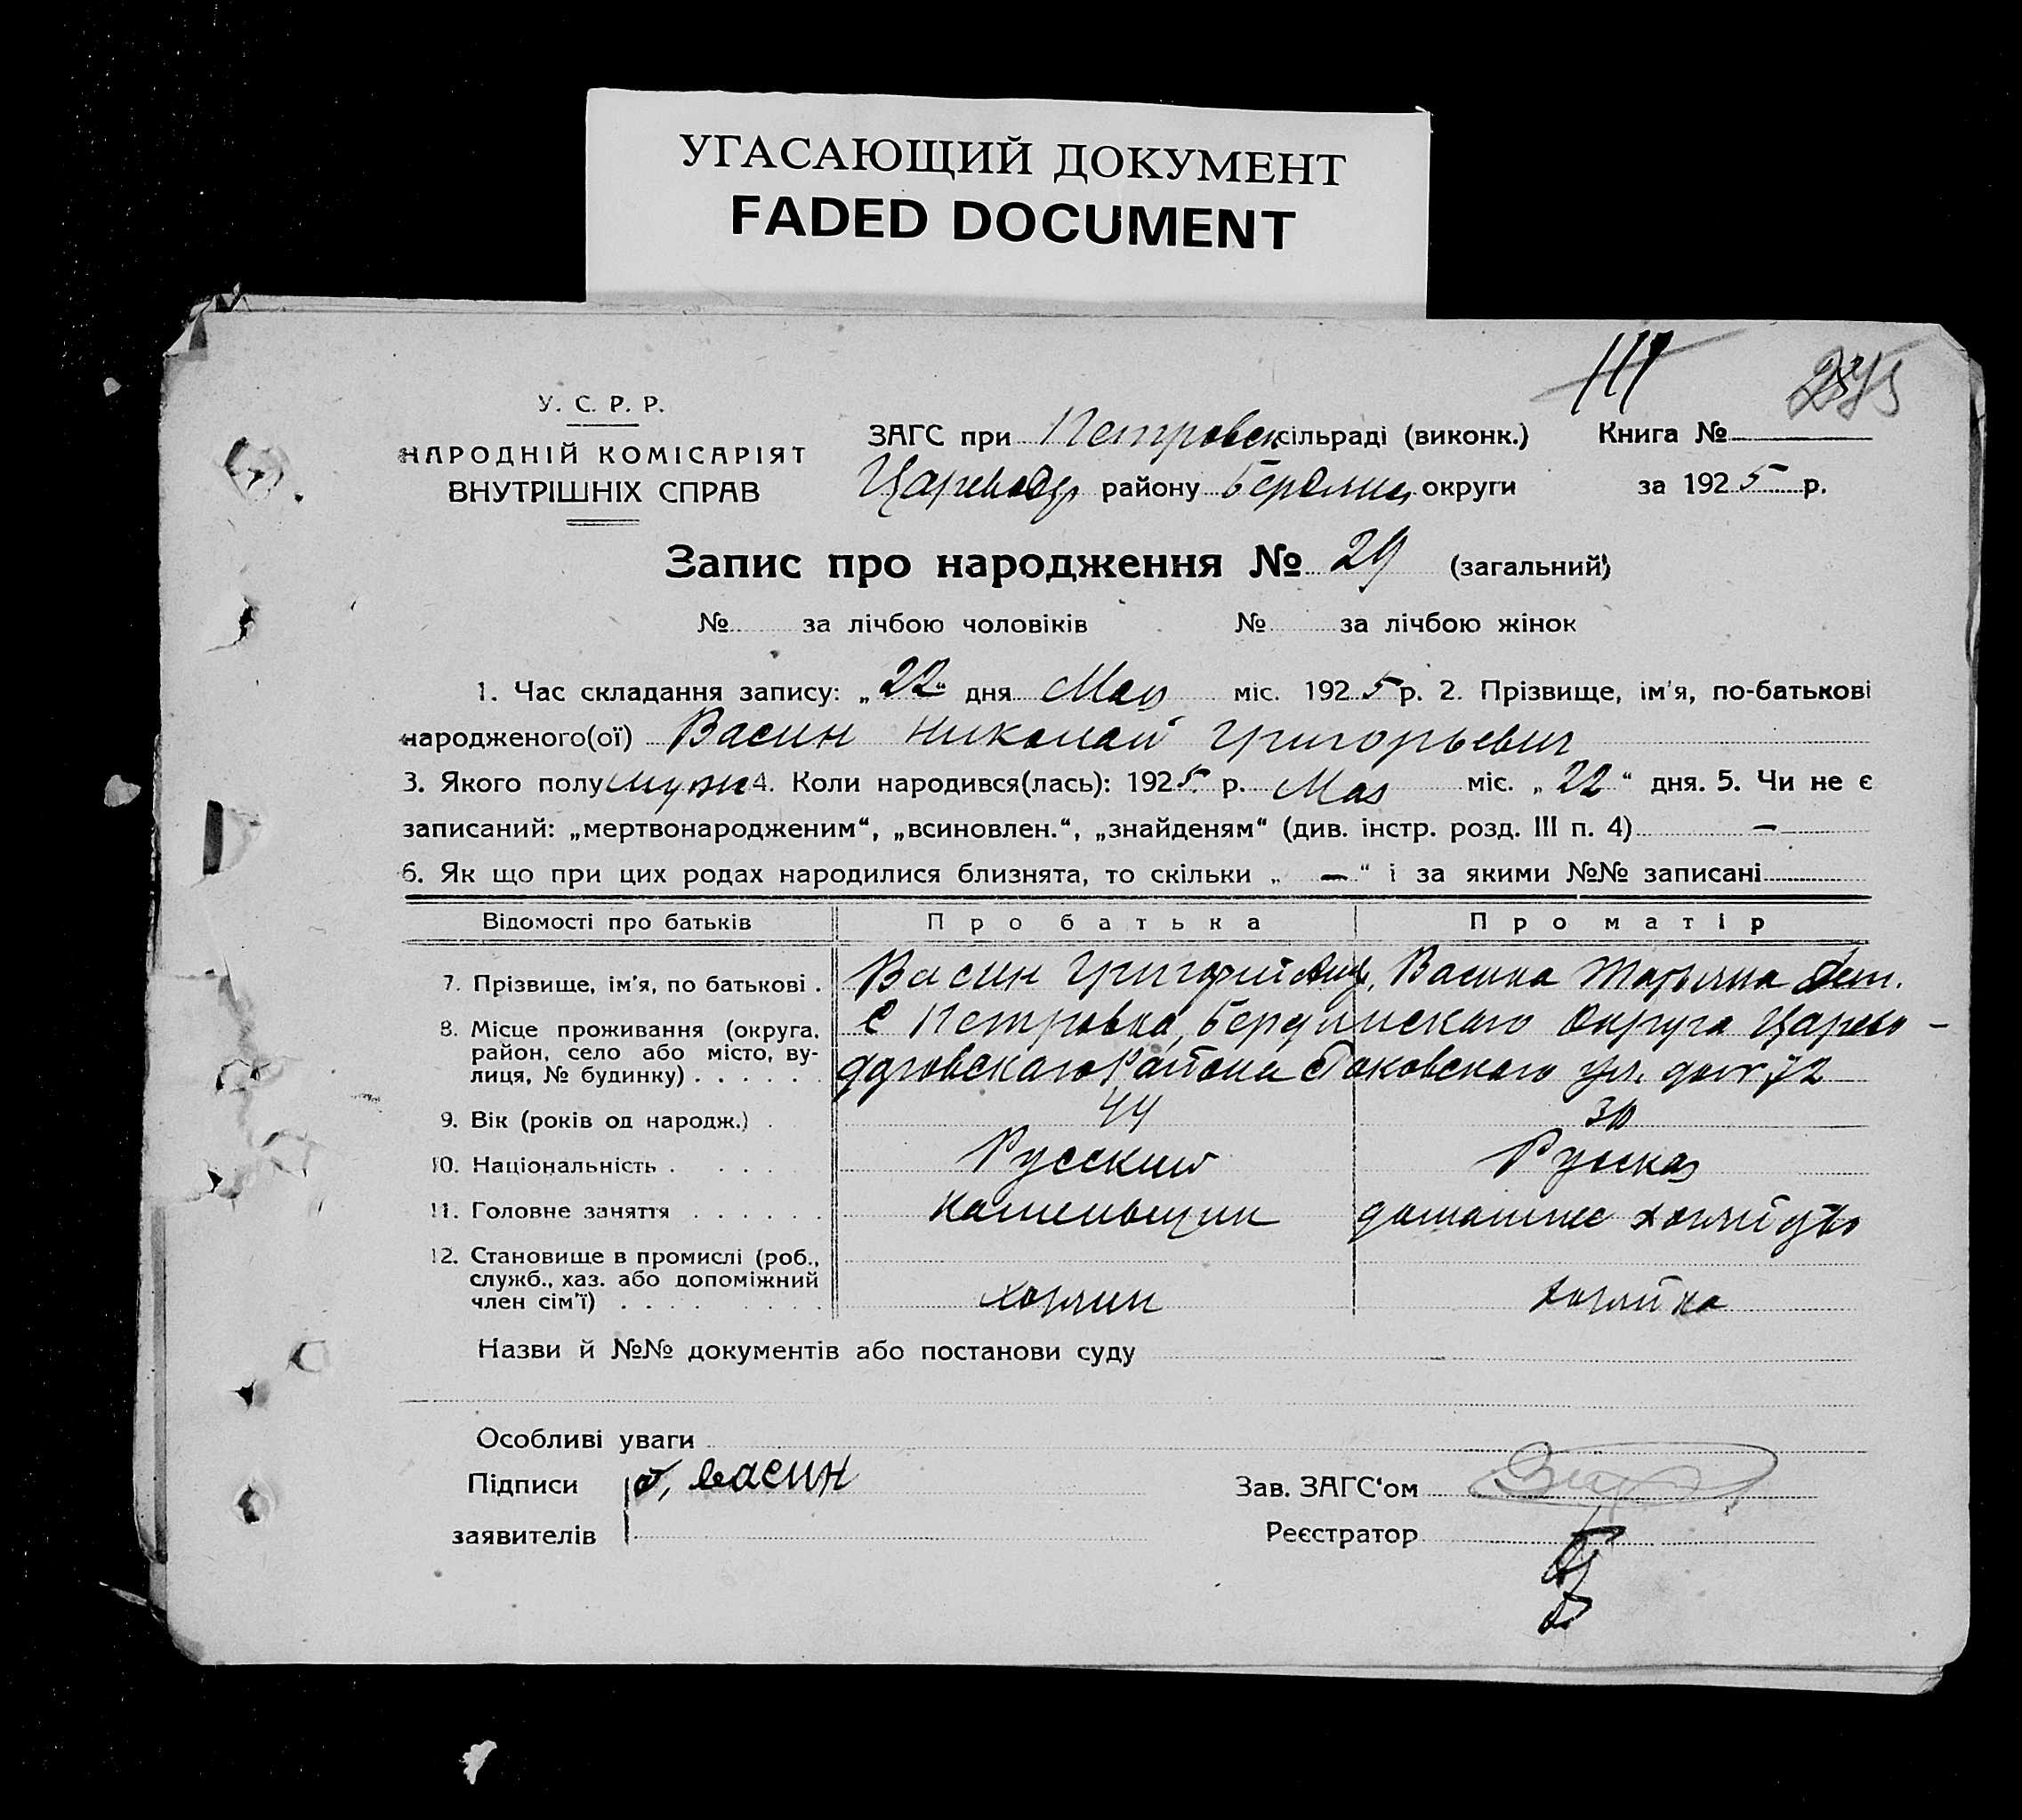 УГАСАЮЩИЙ ДОКУМЕНТ
FADED DOCUMENT
У. С. Р. Р.
НАРОДНІЙ КОМІСАРІЯТ
ВНУТРІШНІХ СПРАВ
ЗАГС при Петровск сільраді (виконк.) Книга №
Царевод району Бердянц округи за 1925 р.
Запис про народження № 29 (загальний)
№ за лічбою чоловіків № за лічбою жінок
1. Час складання запису: „22“ дня Мая міс. 1925 р. 2. Прізвище, ім'я, по-батькові
народженого(ої) Васин Николай Григорьевич
3. Якого полу муж 4. Коли народився(лась): 1925 р. Мая міс. „22“ дня. 5. Чи не є
записаний: „мертвонародженим“, „всиновлен.“, „знайденям“ (див. інстр. розд. III п. 4) —
6. Як що при цих родах народилися близнята, то скільки „ — “ і за якими №№ записані
Відомості про батьків Про батька Про матір
7. Прізвище, ім'я, по батькові . Васин Григорий Васина Татьяна
8. Місце проживання (округа, С Петровка, Бердянскаго Округа Царево-
район, село або місто, ву-
лиця, № будинку) . . . . . . даровскаго Района Раковскаго ул. дом 72
9. Вік (років од народж.) . 44 30
10. Національність . . . . Русский Русская
11. Головне заняття . . . . . . каменьщик домашнее хозяйство
12. Становище в промислі (роб.,
служб., хаз. або допоміжний
член сім'ї) . . . . . . . . . хозяин хозяйка
Назви й №№ документів або постанови суду
Особливі уваги
Підписи Васин Зав. ЗАГС'ом
заявителів Реєстратор